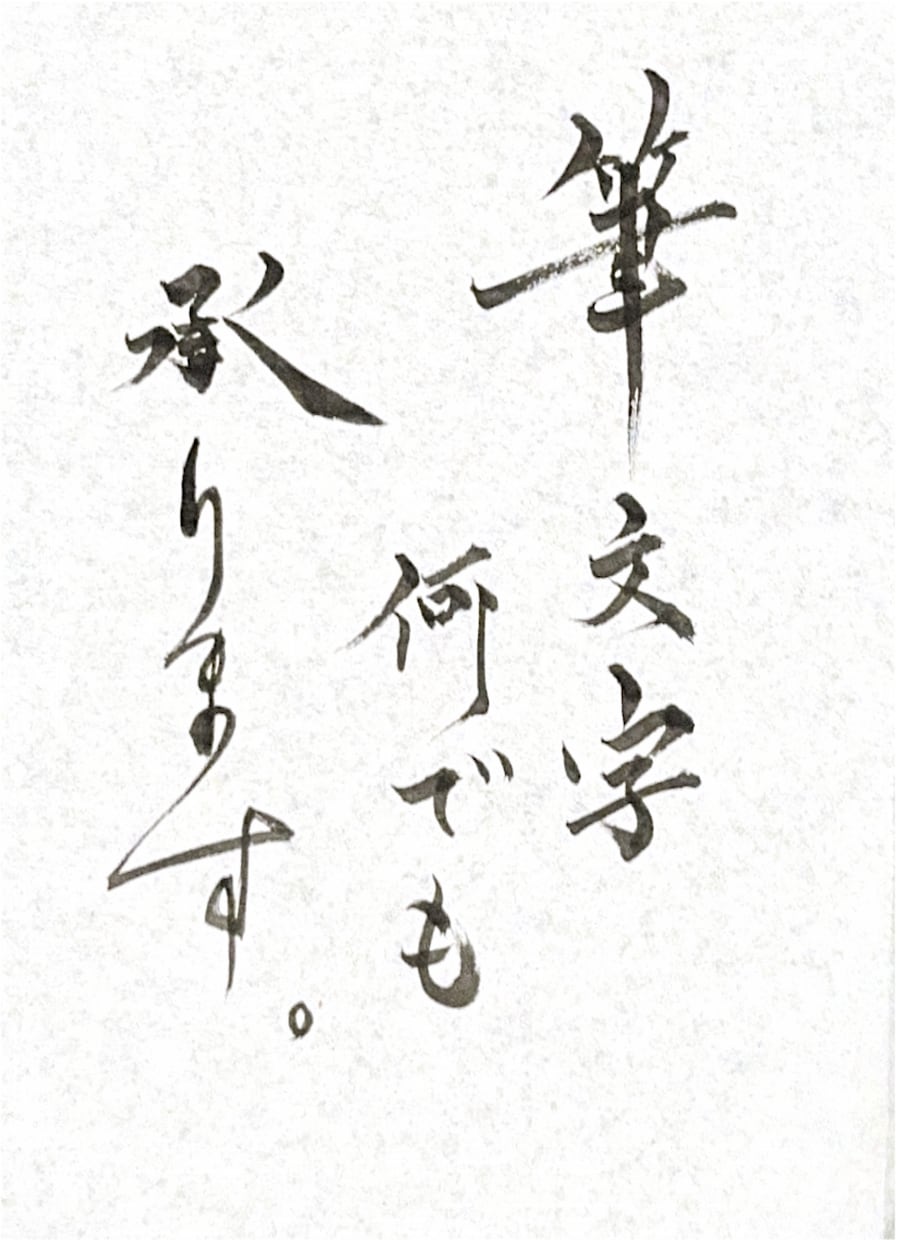 筆文字
何でも
承ります。